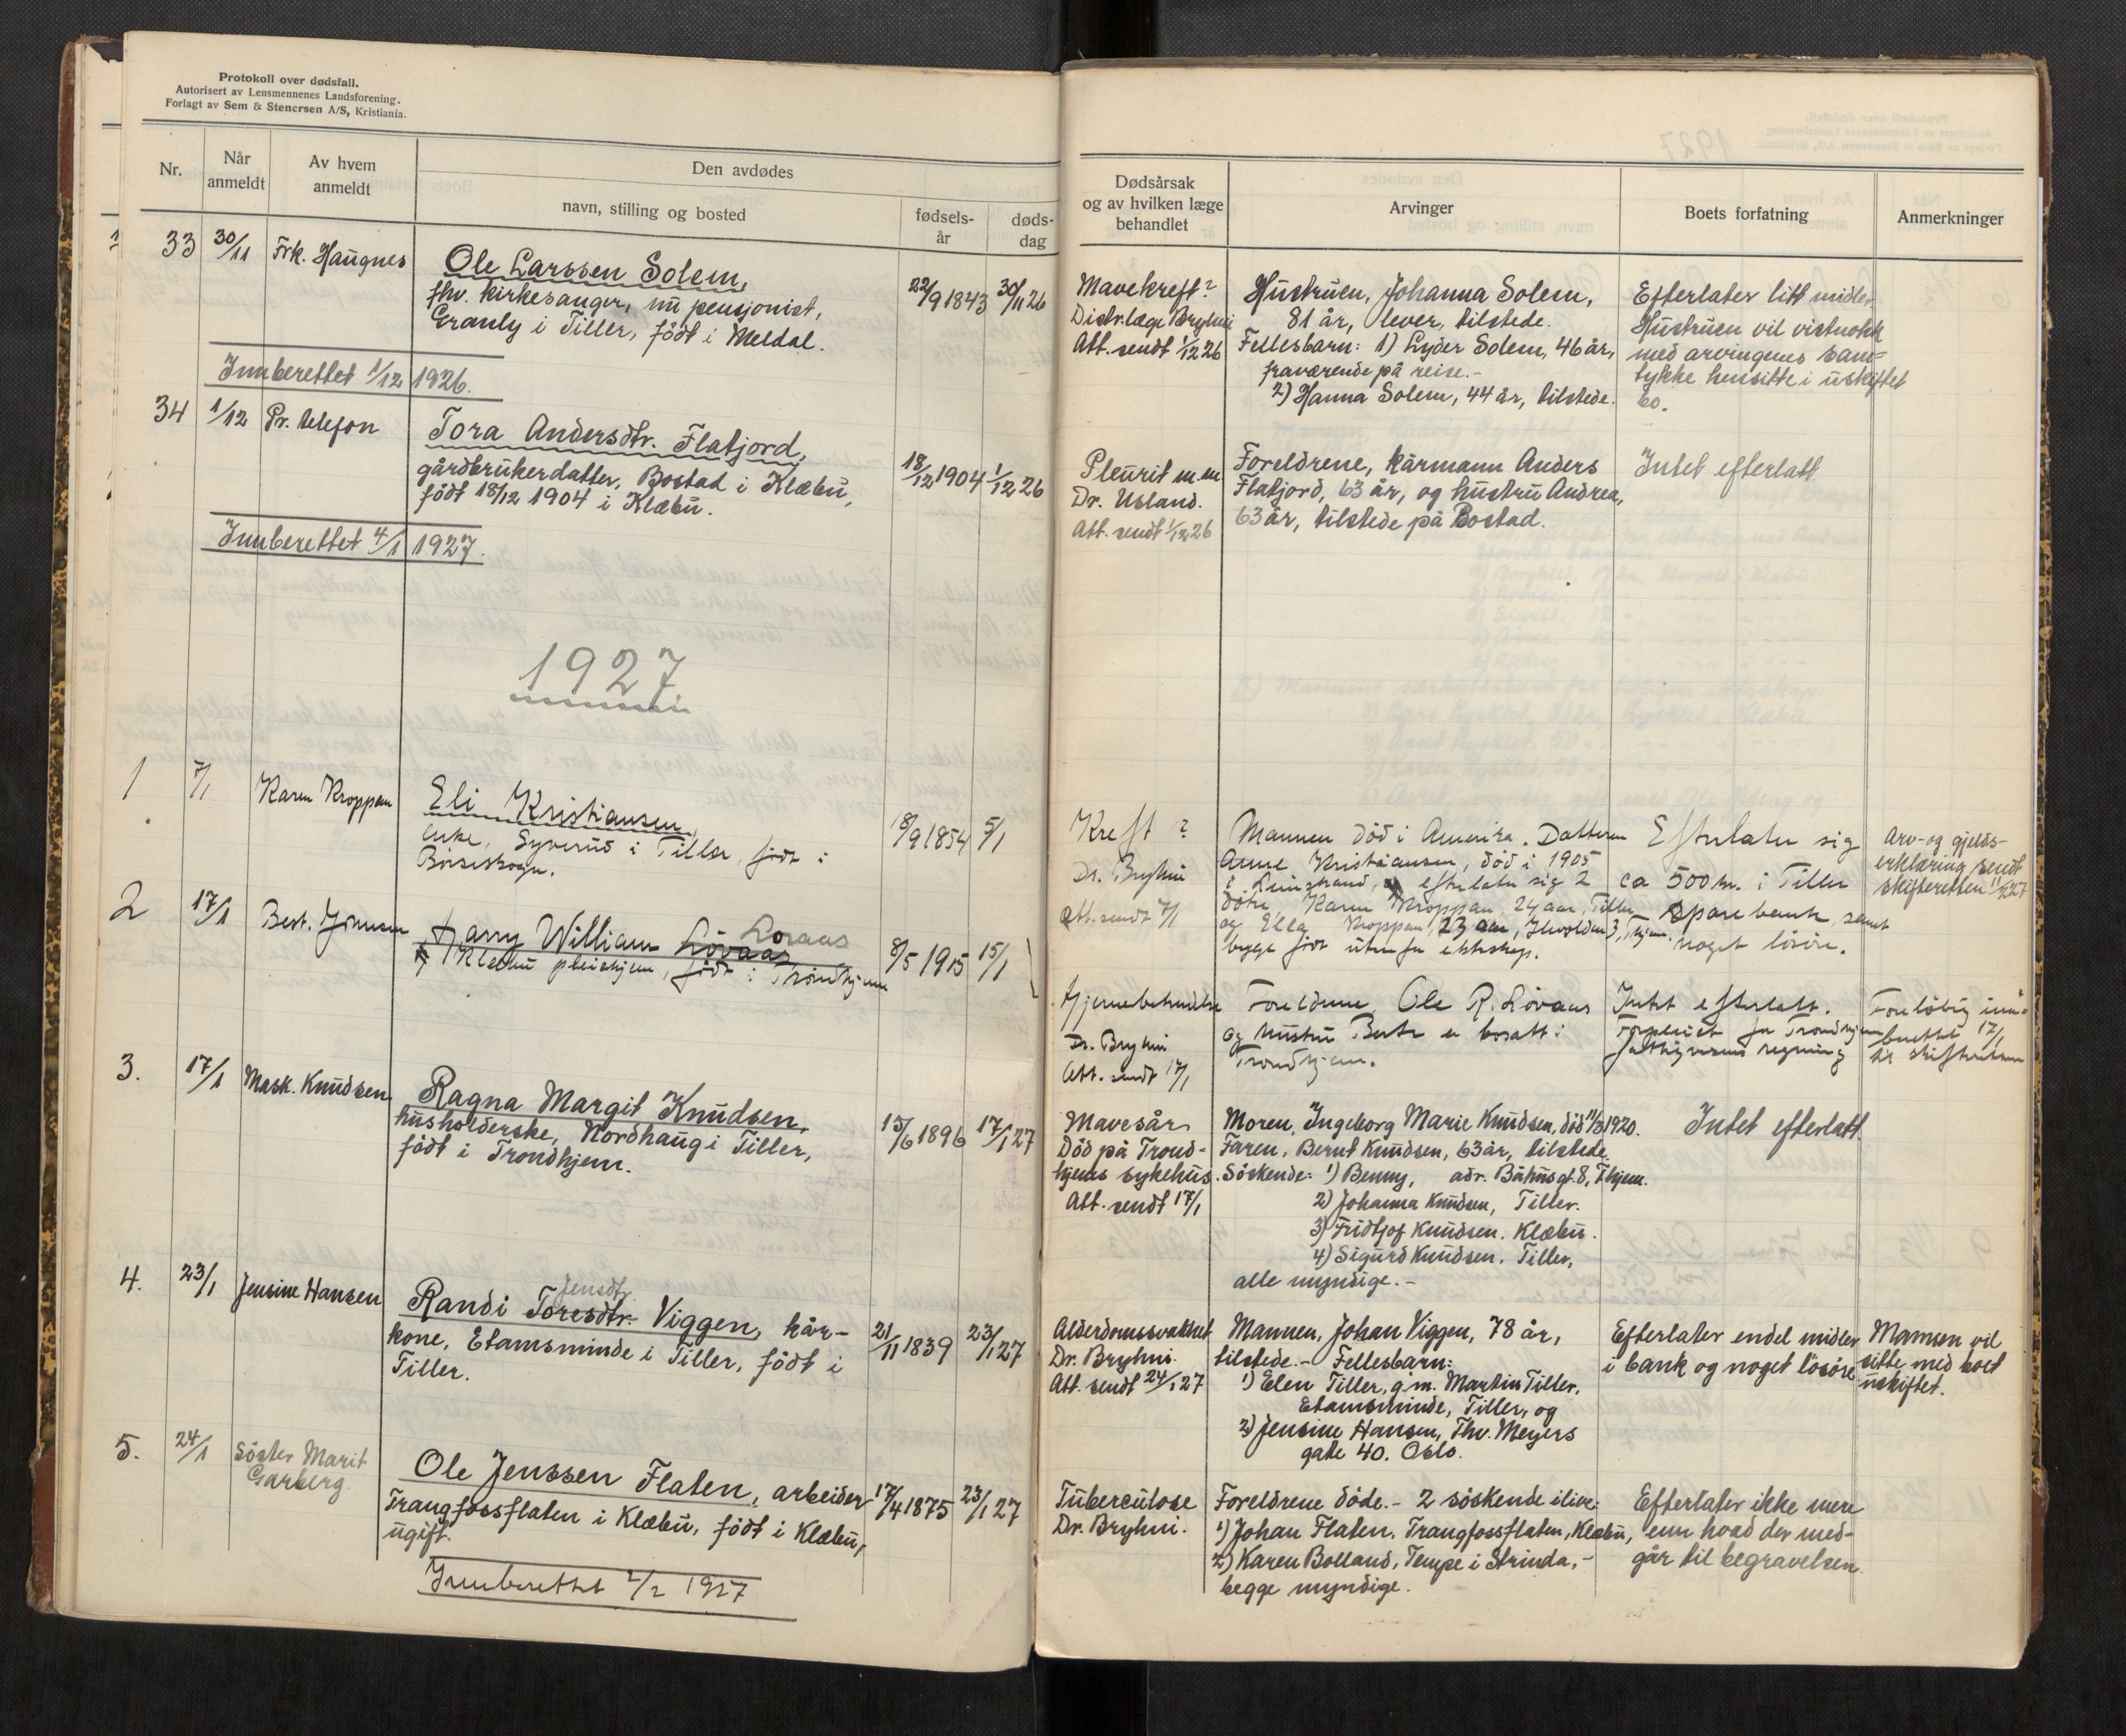 Protokoll over dødsfall.
Autorisert av Lensmennenes Landsforening.
Forlagt av Sem & Stenersen A/S, Kristiania.
Nr.
Når
anmeldt
Av hvem
anmeldt
Den avdødes
navn, stilling og bosted
fødsels-
år
døds-
dag
Dødsårsak
og av hvilken læge
behandlet
Arvinger
Boets forfatning
Anmerkninger
33 30/11 Frk. Haugnes
Ole Larssen Solem,
fhv. kirkesanger, nu pensjonist,
Granly i Tiller, født i Meldal.
22/9 1843 30/11 26
Mavekreft?
Distr.læge Bryhni
Att. sendt 1/12 26
Hustruen, Johanna Solem,
81 år, lever, tilstede.
Fellesbarn: 1) Lyder Solem, 46 år,
fraværende på reise.-
2) Hanna Solem, 44 år, tilstede.
Efterlater litt midler
Hustruen vil vistnokk
med arvingenes sam-
tykke hensitte i uskiftet
bo.
Innberettet 1/12 1926.
34 1/12 Pr. telefon
Tora Andersdtr. Flatjord,
gårdbrukerdatter, Bostad i Klæbu,
født 18/12 1904 i Klæbu.
18/12 1904 1/12 26
Pleurit m.m
Dr. Usland.
Att. sendt 1/12 26
Foreldrene, kårmann Anders
Flatjord, 63 år, og hustru Andrea,
63 år, tilstede på Bostad.
Intet efterlatt
Innberettet 4/1 1927.
1927
1 7/1 Karen Kroppan
Eli Kristiansen,
enke, Syverud i Tiller, født i
Børseskogn.
18/9 1854 5/1
Kreft ?
Dr. Bryhni
Att. sendt 7/1
Mannen død i Amerika. Datteren
Anne Kristiansen, død i 1905
i Leinstrand, efterlater sig 2
døtre, Karen Kroppan, 24 aar, Tiller
og Ella Kroppan, 23 aar, Ilevolden 3, Thjem.
begge født utenfor ekteskap.
Efterlater sig
ca 500 kr. i Tiller
Sparebank samt
noget løsøre.
Arv- og gjelds-
erklæring sendt
skifteretten
2 17/1 Best. Jonsen
Harry William Lövaas Loraas
Klæbu pleiehjem, født i Trondhjem
8/5 1915 15/1
Hjernebetendelse
Dr. Bryhni
Att. sendt 17/1
Foreldrene Ole R. Lövaas
og hustru Berte er bosatt i
Trondhjem.
Intet efterlatt.
Forpleiet for Trondhjem
fattigvesens regning
Foreløbig inn-
berettet 17/1
til skifteretten
3. 17/1 Mask. Knudsen
Ragna Margit Knudsen,
husholderske, Nordhaug i Tiller,
født i Trondhjem.
15/6 1896 17/1 27
Mavesår
Död på Trond-
hjems sykehus.
Att. sendt 17/1
Moren, Ingeborg Marie Knudsen, död 11/3 1920.
Faren, Bernt Knudsen, 63 år, tilstede.
Söskende: 1) Benny, adr. Båhusgt. 8, Thjem.
2) Johanna Knudsen, Tiller.
3) Fridtjof Knudsen. Klæbu.
4) Sigurd Knudsen. Tiller,
alle myndige.-
Intet efterlatt
4. 23/1 Jensine Hansen
Jensdtr.
Randi Toresdtr. Viggen, kår-
kone, Etamsminde i Tiller, født i
Tiller.
21/11 1839 23/1 27
Alderdomssvakhet
Dr. Bryhni.
Att. sendt 24/1 27
Mannen, Johan Viggen, 78 år,
tilstede.- Fellesbarn:
1) Elen Tiller, g.m. Martin Tiller,
Etamsminde, Tiller, og
2) Jensine Hansen, Thv. Meyers
gate 40. Oslo.
Efterlater endel midler
i bank og noget lösöre
Mannen vil
sitte med boet
uskiftet.
5. 24/1 Söster Marit
Garberg.
Ole Jenssen Flaten, arbeider
Trangfossflaten i Klæbu, født i Klæbu,
ugift.
17/4 1875 23/1 27
Tuberculose
Dr. Bryhni.
Foreldrene döde.- 2 söskende ilive:
1) Johan Flaten, Trangfossflaten, Klæbu,
2) Karen Bolland, Tempe i Strinda,-
begge myndige.
Efterlater ikke mere
enn hvad der med-
går til begravelsen
Innberettet 2/2 1927